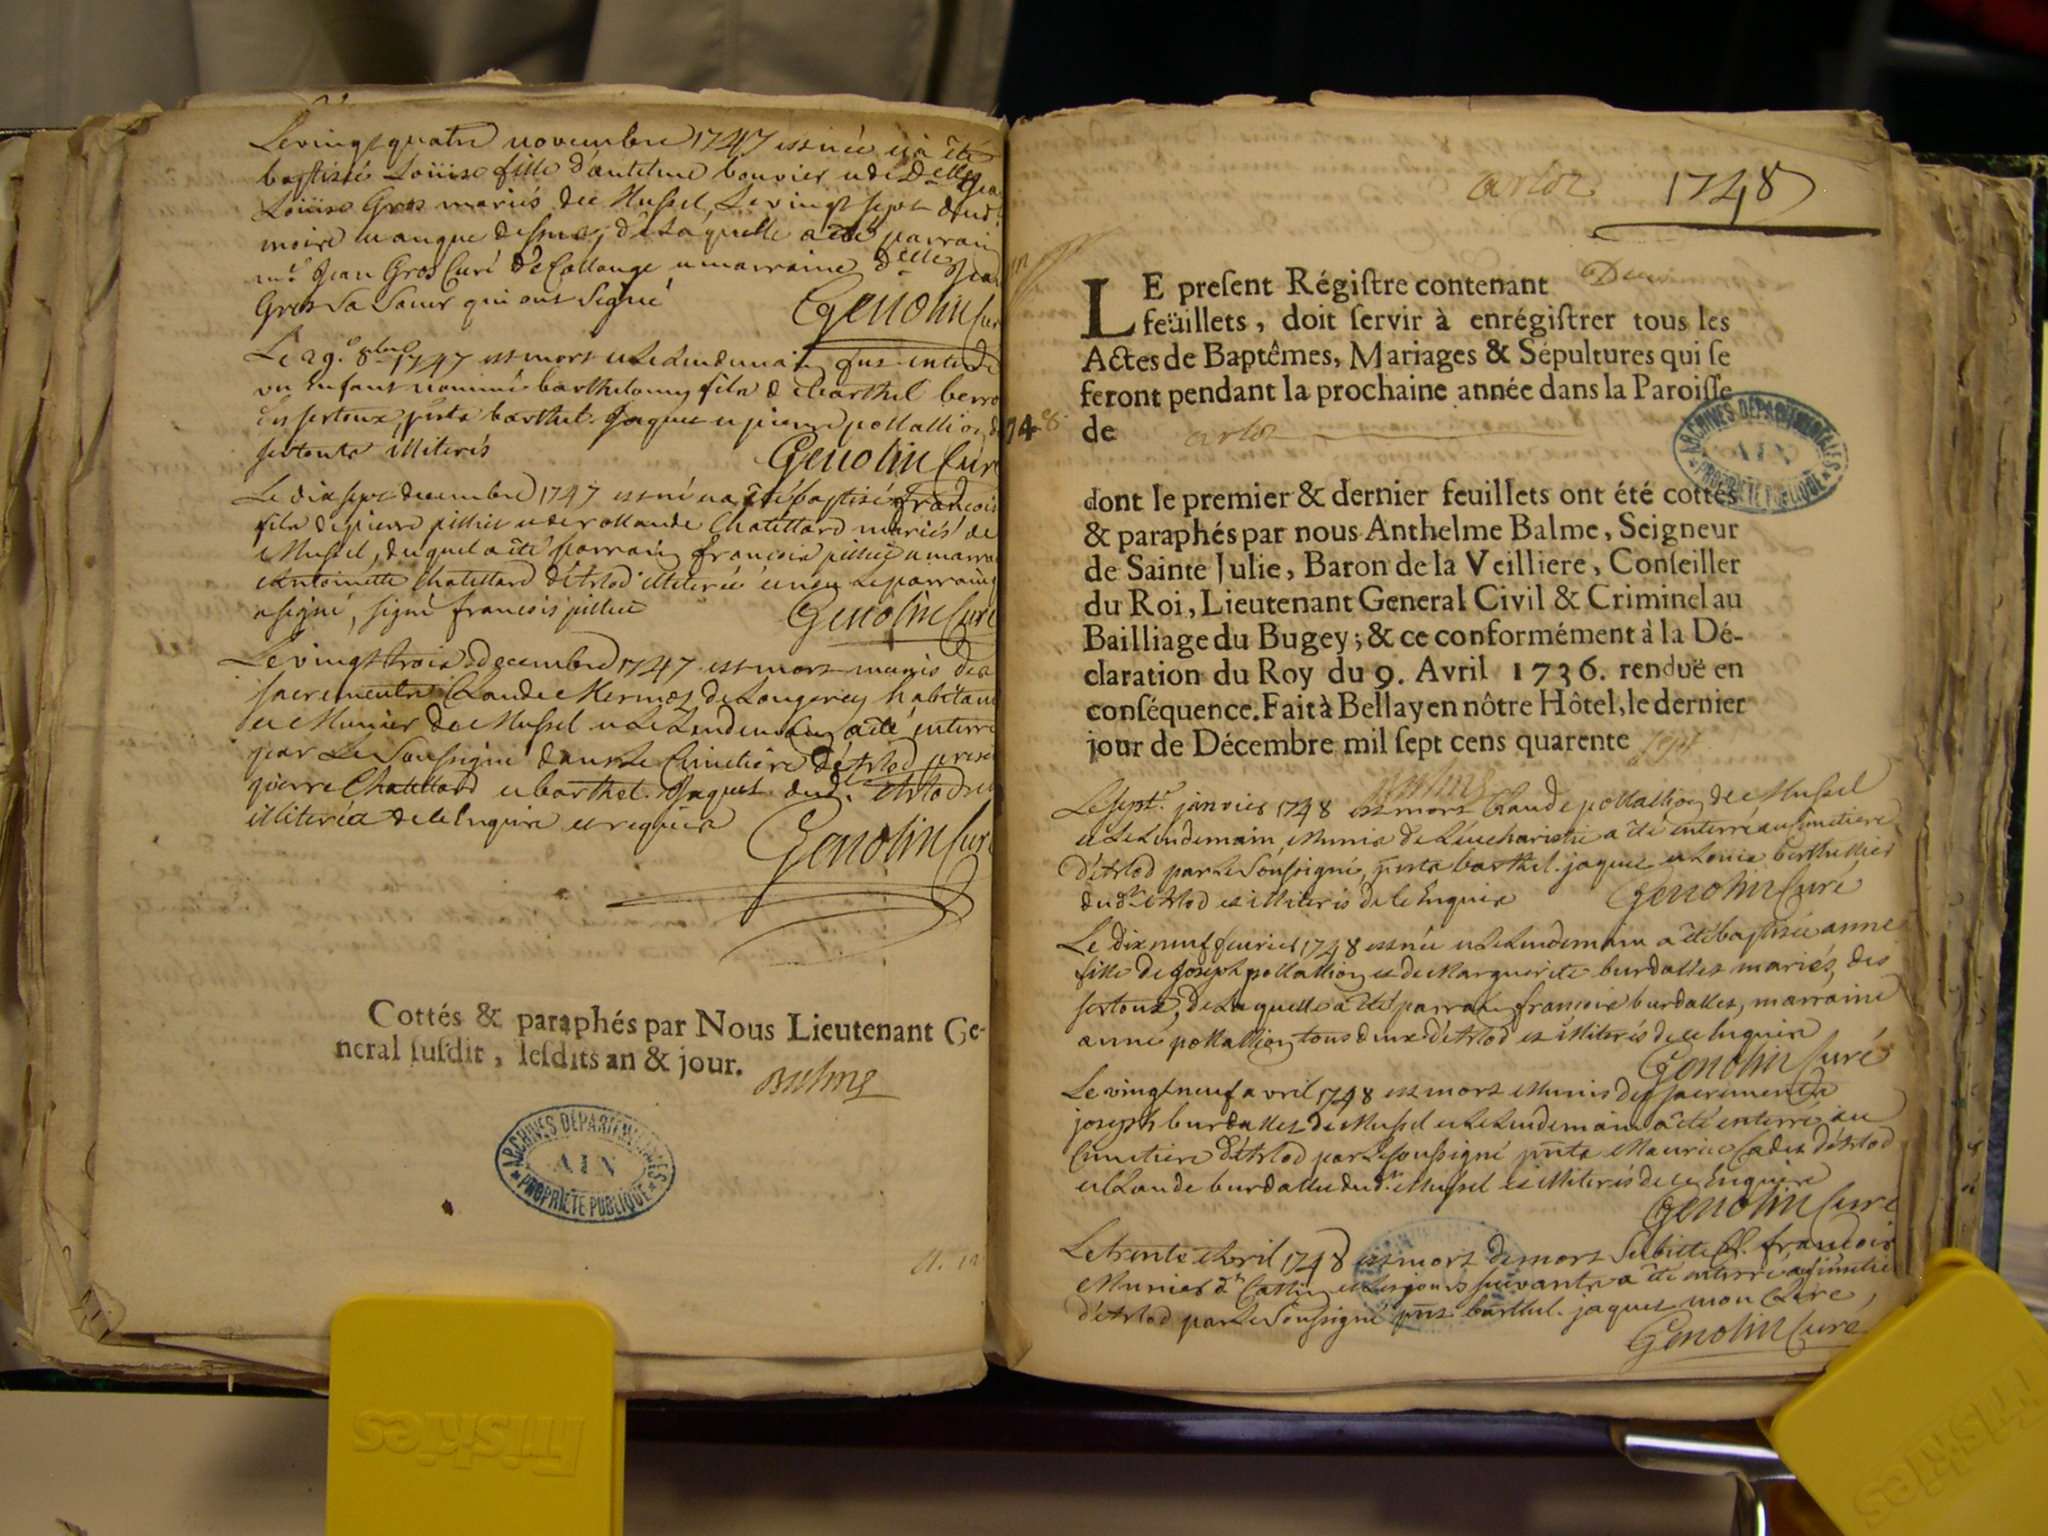 Le vingt quatre novembre 1747 est née et a été
baptisée Loüise fille d'antelme bouvier et de Delle
Loüise Gros mariés de Mussel, Le vingt sept dud.
moire de laquelle a été parrain
mre Jean Gros Curé de Collonge et marraine Delle
Gros Sa Sœur qui ont Signé Genolin Cur
Le 29e 8bre 1747 est mort et Le Lendemain fut enter
un Enfant nommé barthelemy fils de Barthel berro
des sertoux, pnts barthel. Jaques et pierre pollallion
sertoute illiterés Genolin Curé
Le dix sept decembre 1747 est né et a été baptisé francois
fils de pierre pillieu et de rollande Chatellard mariés de
Mussel, duquel a été parrain francois pillieu et marra
Antoinette Chatellard d'Arlod illiterée enqu Le parrain
a signé, signé francois pillieu Genolin Curé
Le vingt trois decembre 1747 est mort munis des
sacrements Claude Mermet de Longerey habitant
et Munier de Mussel et Le Lendemain a été enterré
par Le Soussigné dans Le Cimetiere d'Arlod presen
pierre Chatellard et barthel. Jaques dud. Arlod
illiterés de ce Enquis et requis Genolin Curé
Cottés & paraphés par Nous Lieutenant Ge-
neral susdit, lesdits an & jour. Balme
ARCHIVES DÉPARTEMENTALES
AIN
PROPRIÉTÉ PUBLIQUE
arloz 1748
LE present Régistre contenant Deux
feüillets, doit servir à enrégistrer tous les
Actes de Baptêmes, Mariages & Sépultures qui se
feront pendant la prochaine année dans la Paroisse
de arloz
ARCHIVES DÉPARTEMENTALES
AIN
PROPRIÉTÉ PUBLIQUE
dont le premier & dernier feuillets ont été cottés
& paraphés par nous Anthelme Balme, Seigneur
de Sainte Julie, Baron de la Veilliere, Conseiller
du Roi, Lieutenant General Civil & Criminel au
Bailliage du Bugey; & ce conformément à la Dé-
claration du Roy du 9. Avril 1736. renduë en
conséquence. Fait à Bellay en nôtre Hôtel, le dernier
jour de Décembre mil sept cens quarente sept
Balme
Le sept. janvier 1748 est mort Claude pollallion de Mussel
et Le Lendemain, Munis de L'eucharistie a été enterré au Cimetiere
d'Arlod par Le Soussigné, pnts barthel. jaques et Louis berthellier
dud. Arlod et illiterés de ce Enquis Genolin Curé
Le dix neuf fevrier 1748 est née et Le Lendemain a été baptisée anne
fille de Joseph pollallion et de Marguerite burdallet mariés, des
sertoux, de Laquelle a été parrain francois burdallet, marraine
anne pollallion tous deux d'Arlod et illiterés de ce Enquis
Genolin Curé
Le vingt neuf avril 1748 est mort Munis des sacrements
joseph burdallet de Mussel et Le Lendemain a été enterré au
Cimetiere d'Arlod par Le soussigné pnts Maurice Cadet d'Arlod
et Claude burdallet dud. Mussel et illiterés de ce Enquis
Genolin Curé
Le trente Avril 1748 est mort de mort Subitte francois
Munier et Le jours suivants a été enterré au Cimetiere
d'Arlod par Le Soussigné pnt barthel. jaques mon Clerc,
Genolin Curé
Friskies
Friskies